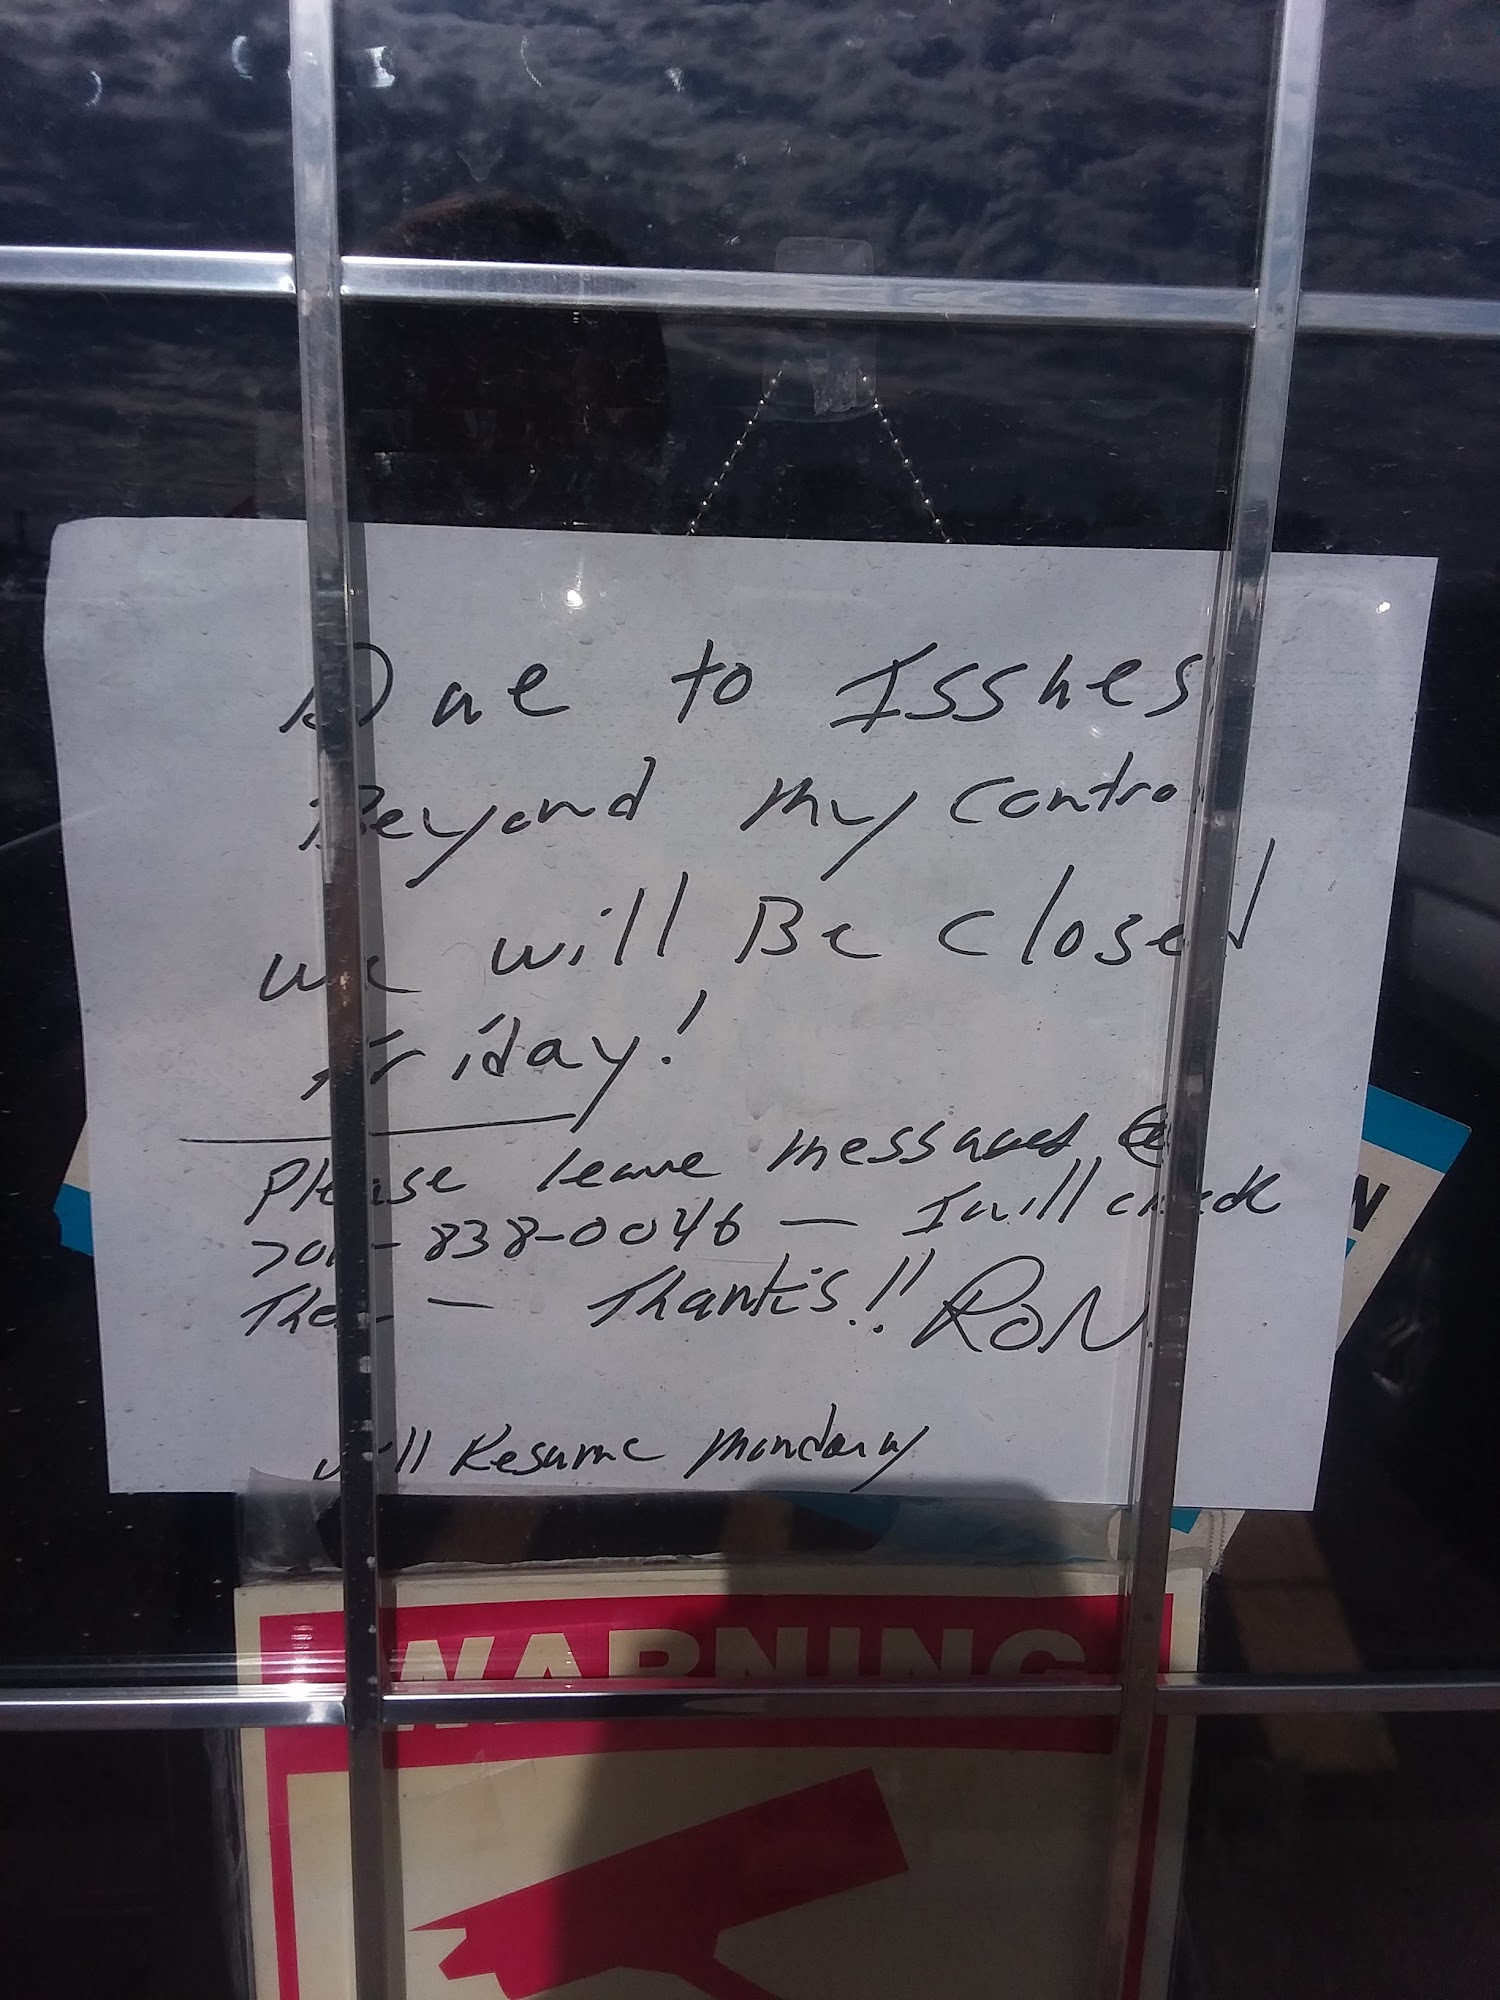 Due to Issues
Beyond my control
we will Be closed
Friday!
Please leave messages @
838-0046 — I will check
Them — Thanks!! RON
will Resume monday
WARNING